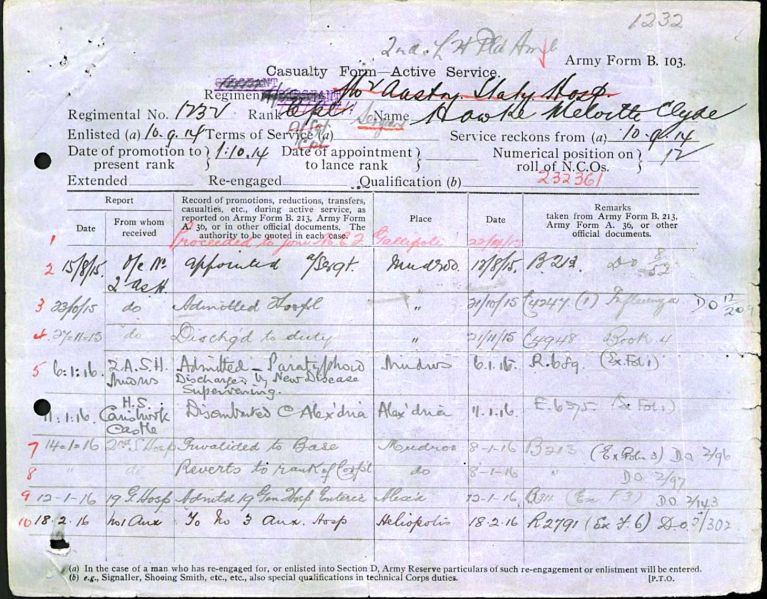 1232
Army Form B. 103.
Casualty Form—Active Service.
Regiment Hosp
Regimental No. 1232 Rank Cpl Name Hawke Melville Clyde
Enlisted (a) 10.9.14 Terms of Service (a) Service reckons from (a) 10.9.14
Date of promotion to present rank } 1.10.14 Date of appointment to lance rank } Numerical position on roll of N.C.Os. } 12
Extended Re-engaged Qualification (b) 232361
Report
Date From whom received
Record of promotions, reductions, transfers, casualties, etc., during active service, as reported on Army Form B. 213, Army Form A. 36, or in other official documents. The authority to be quoted in each case.
Place
Date
Remarks taken from Army Form B. 213, Army Form A. 36, or other official documents.
1 Proceeded to join Gallipoli
2 15/8/15 O/c No 2 appointed a/Sergt. Mudros 12/8/15 B213 DO 8/52
3 23/10/15 do Admitted Hospl " 21/10/15 E4247 (1) Influenza DO
4 27-11-15 do Disch'gd to duty " 21/11/15 E4948 Book 4
5 6:1:16 2.A.S.H. Mudros Admitted – Paratyphoid Discharged by New Disease Supervening. Mudros 6.1.16. (Ex Fol 1)
11.1.16 H.S. Carisbrook Castle Disembarked @ Alex'dria Alex'dria 11.1.16. E.695. (Ex Fol 1)
7 14-1-16 2nd S Hosp Invalided to Base Mudros 8-1-16 B213 DO 2/96
8 " do Reverts to rank of Corpl do 8-1-16 " DO 2/97
9 12-1-16 19 G. Hosp Admtd 19 Gen Hosp Enteric Alexa 12-1-16 (Ex F3) DO 2/143
10 18.2.16 No 1 Aux To No 3 Aux. Hosp Heliopolis 18.2.16 R2791 (Ex F.6) DO 2/302
(a) In the case of a man who has re-engaged for, or enlisted into Section D, Army Reserve particulars of such re-engagement or enlistment will be entered.
(b) e.g., Signaller, Shoeing Smith, etc., etc., also special qualifications in technical Corps duties. [P.T.O.